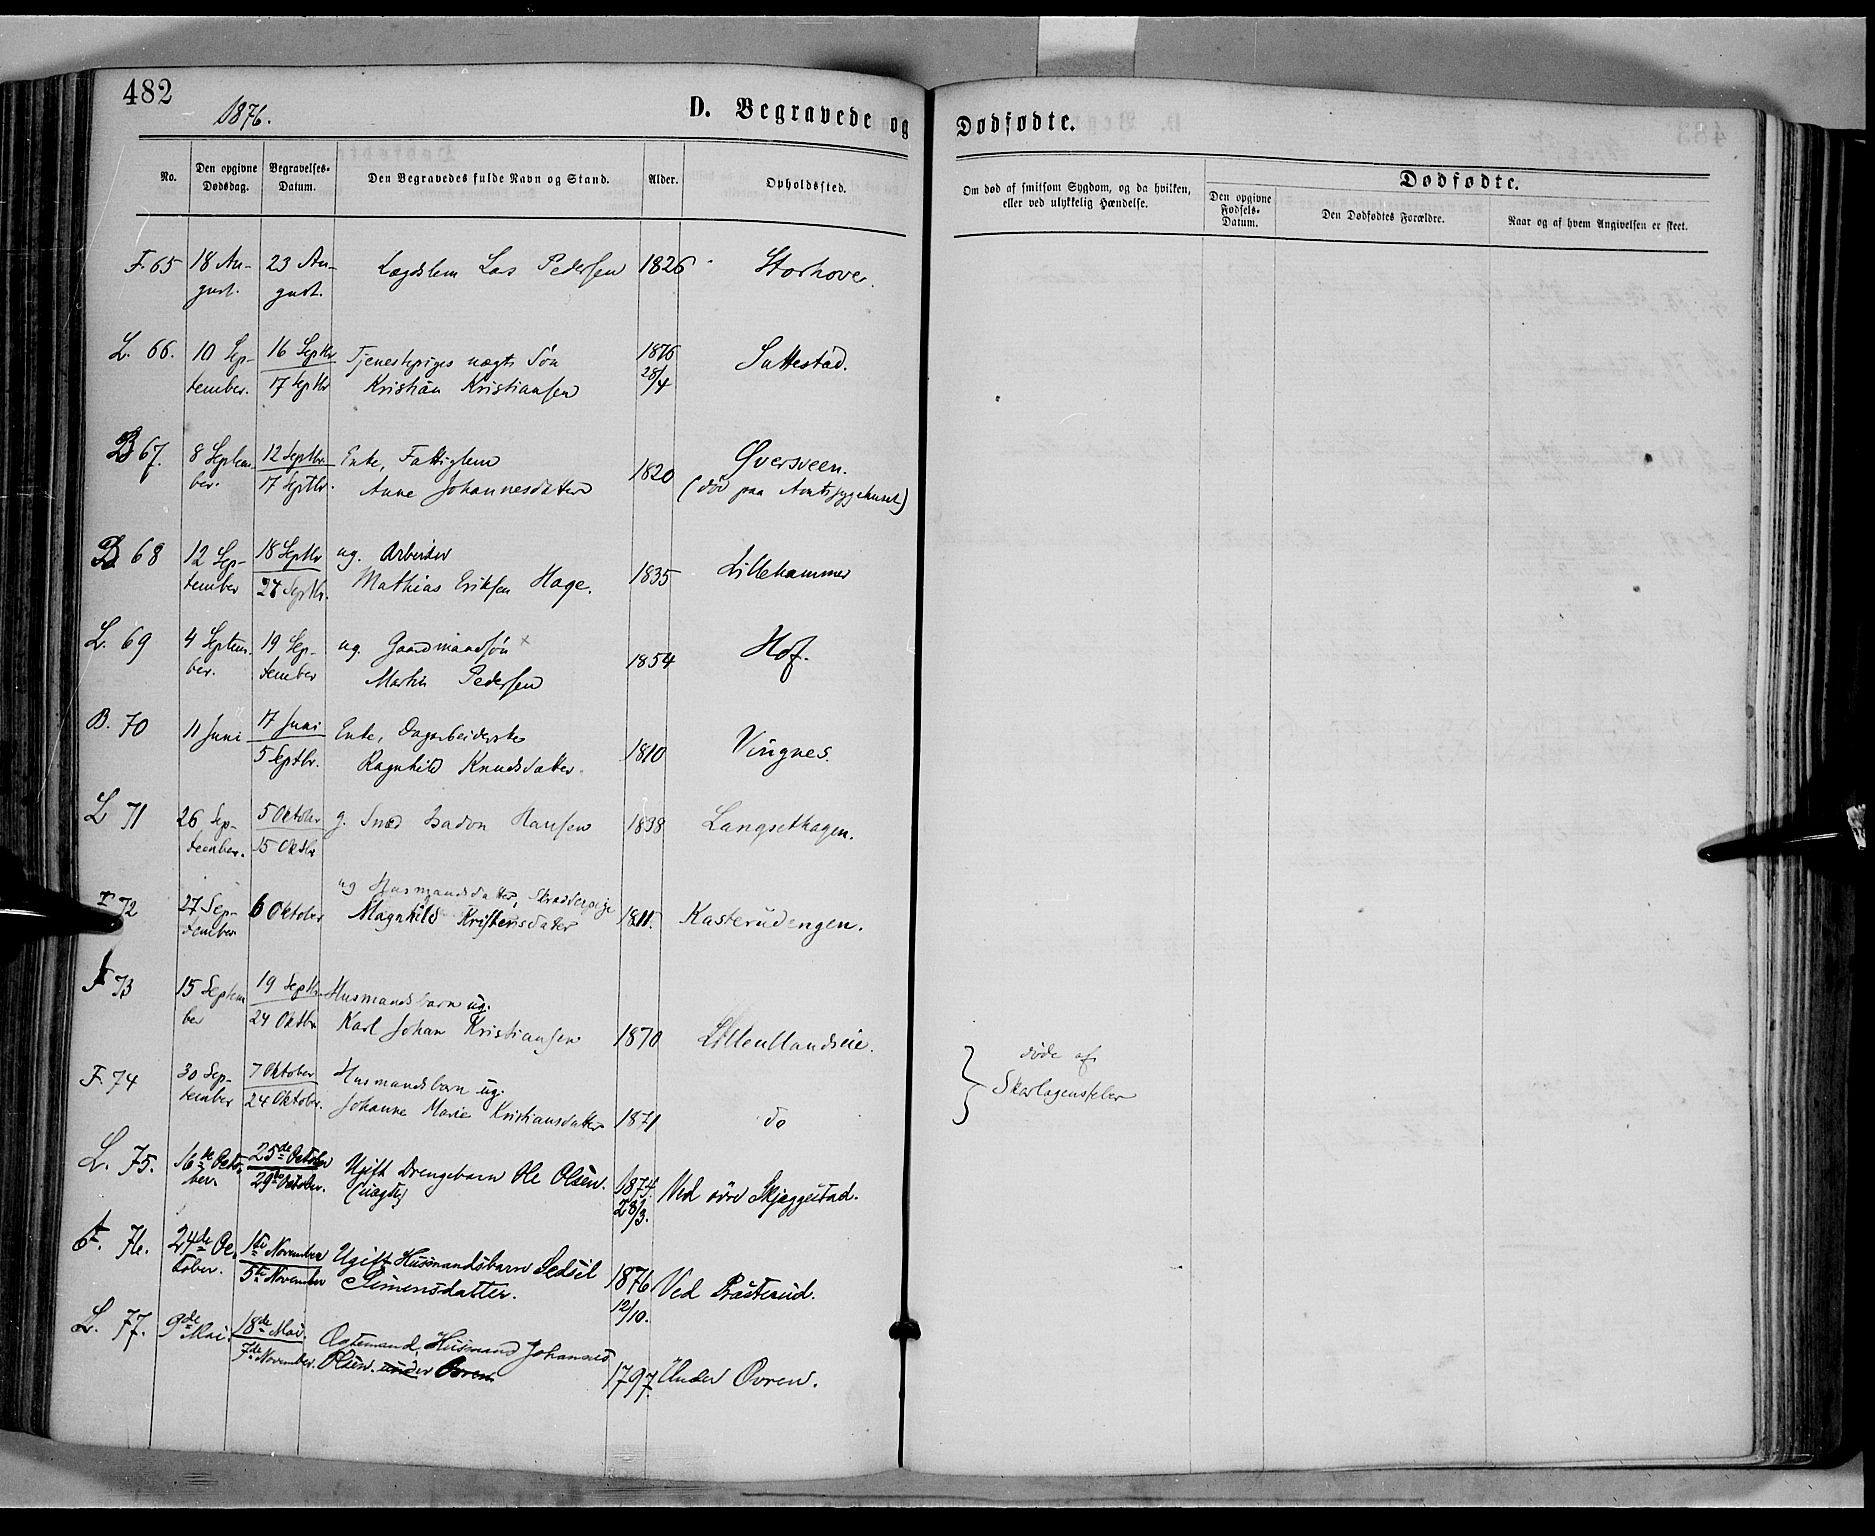 482
1876.
D. Begravede og Dødfødte.
No.
Den opgivne Dødsdag.
Begravelses-Datum.
Den Begravedes fulde Navn og Stand.
Alder.
Opholdssted.
Om død af smitsom Sygdom, og da hvilken, eller ved ulykkelig Hændelse.
Dødfødte.
Den opgivne Fødsels-Datum.
Den Dødfødtes Forældre.
Naar og af hvem Angivelsen er skeet.
F. 65 18 Au- 23 Au- Lægdslem Lars Pedersen 1826 Storhove.
gust. gust.
L. 66. 10 Sep- 16 Septbr Tjenestepiges uægte Søn 1876 Sattestad.
tember. 17 Septbr Kristian Kristiansen 28/4
B 67. 8 Septem 12 Septbr. Enke, Fattiglem 1820 Øversveen.
ber. 17 Septbr. Anne Johannesdatter (død paa Amtssygehuset)
B 68 12 Sep- 18 Septbr ug. Arbeider 1835 Lillehammer
tember 24 Septbr. Mathias Eriksen Hage.
L. 69 4 Septem- 19 Sep- ug. Gaardmandssøn 1854 Hof.
ber. tember Martin Pedersen
B. 70 11 Juni 17 Juni Enke, Dagarbeiderske 1810 Vingnes.
5 Septbr. Ragnhild Knudsdatter.
L 71 26 Sep- 5 Oktober g. Smed Hansen 1838 Langsethagen.
tember. 15 Oktbr
F 72 27 Sep- 6 Oktober ug Husmandsdatter, 1811. Kasterudengen.
tember Magnhild Kristensdatter
F 73 15 Septem 19 Septbr. Husmandsbarn ug. 1870 Lillenllandseie.
ber 24 Oktbr. Karl Johan Kristiansen
F. 74 30 Sep- 7 Oktober Husmandsbarn ug. 1871 do } døde af
tember 24 Oktober. Johanne Marie Kristiansdatter Skarlagensfeber
L. 75. 16de Octo- 25de October Ugift Drengebarn Ole Olsen. 1874. Ved øvre Skjeggestad.
ber. 29de October. (uægte) 28/3.
F. 76. 24de Oc- 1ste November Ugift Husmandsbarn Sedsil 1876 Ved Prästerud.
tober. 5te November Simensdatter. 12/10.
L. 77. 9de Mai. 18de Mai. Ægtemand, Husmand Johannes 1797. Under Øvren.
7de November. Olsen. under Øvren.